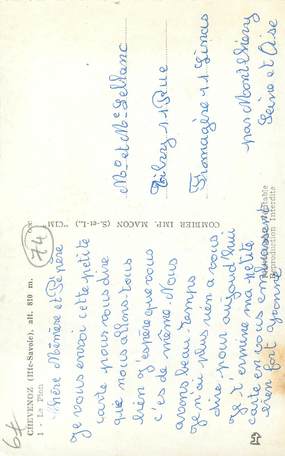 CHEVENOZ (Hte-Savoie), alt. 810 m.
1 - Le Plan
74
6#
Chère Mémère et Pépère
je vous envoi cette petite
carte pour vous dire
que nous allons tous
bien j'espère que vous
c'es de même. Nous
avons beau temps
Je n'ai plus rien a vous
dire pour aujourd'hui
Je t'ermine ma petite
carte en vous embrassant
bien fort Yvonne
COMBIER IMP. MACON (S.-et-L.) "CIM"
Reproduction Interdite
Mr et Me Leblanc
11 Rue
Fromagère 11 Linas
par Montlhéry
Seine et Oise